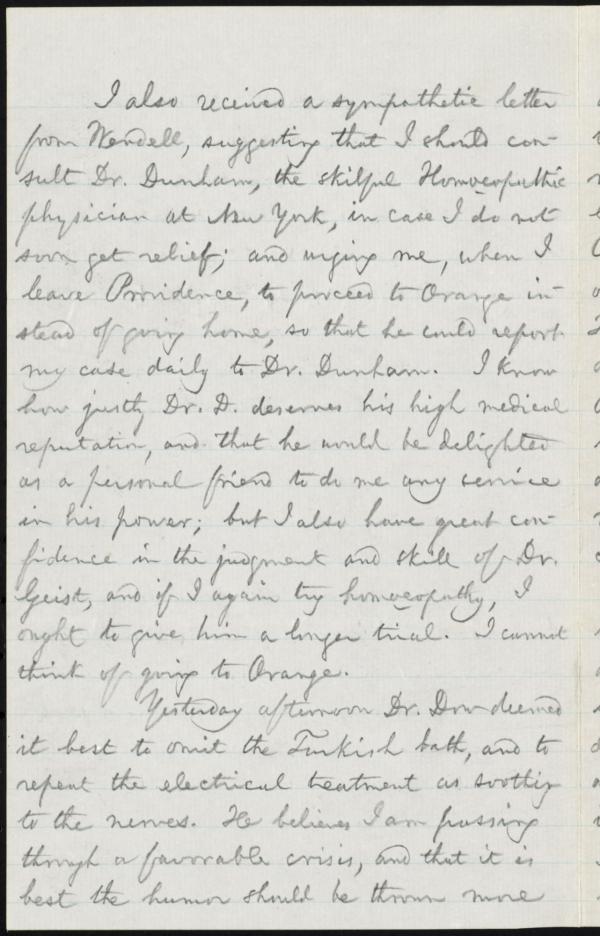 I also received a sympathetic letter
from Wendell, suggesting that I should con-
sult Dr. Dunham, the skilful Homoeopathic
physician at New York, in case I do not
soon get relief; and urging me, when I
leave Providence, to proceed to Orange in-
stead of going home, so that he could report
my case daily to Dr. Dunham. I know
how justly Dr. D. deserves his high medical
reputation, and that he would be delighted
as a personal friend to do me any service
in his power; but I also have great con-
fidence in the judgment and skill of Dr.
Geist, and if I again try homoeopathy, I
ought to give him a longer trial. I cannot
think of going to Orange.
Yesterday afternoon Dr. Dow deemed
it best to omit the Turkish bath, and to
repeat the electrical treatment as soothing
to the nerves. He believes I am passing
through a favorable crisis, and that it is
best the humor should be thrown more